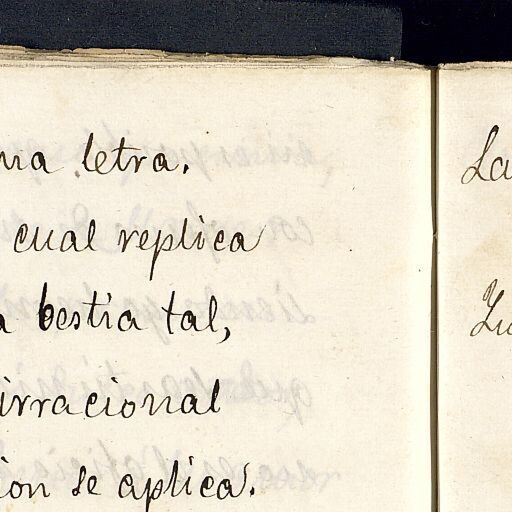 letra.
cual replica
a bestia tal,
irracional
ion se aplica.
La